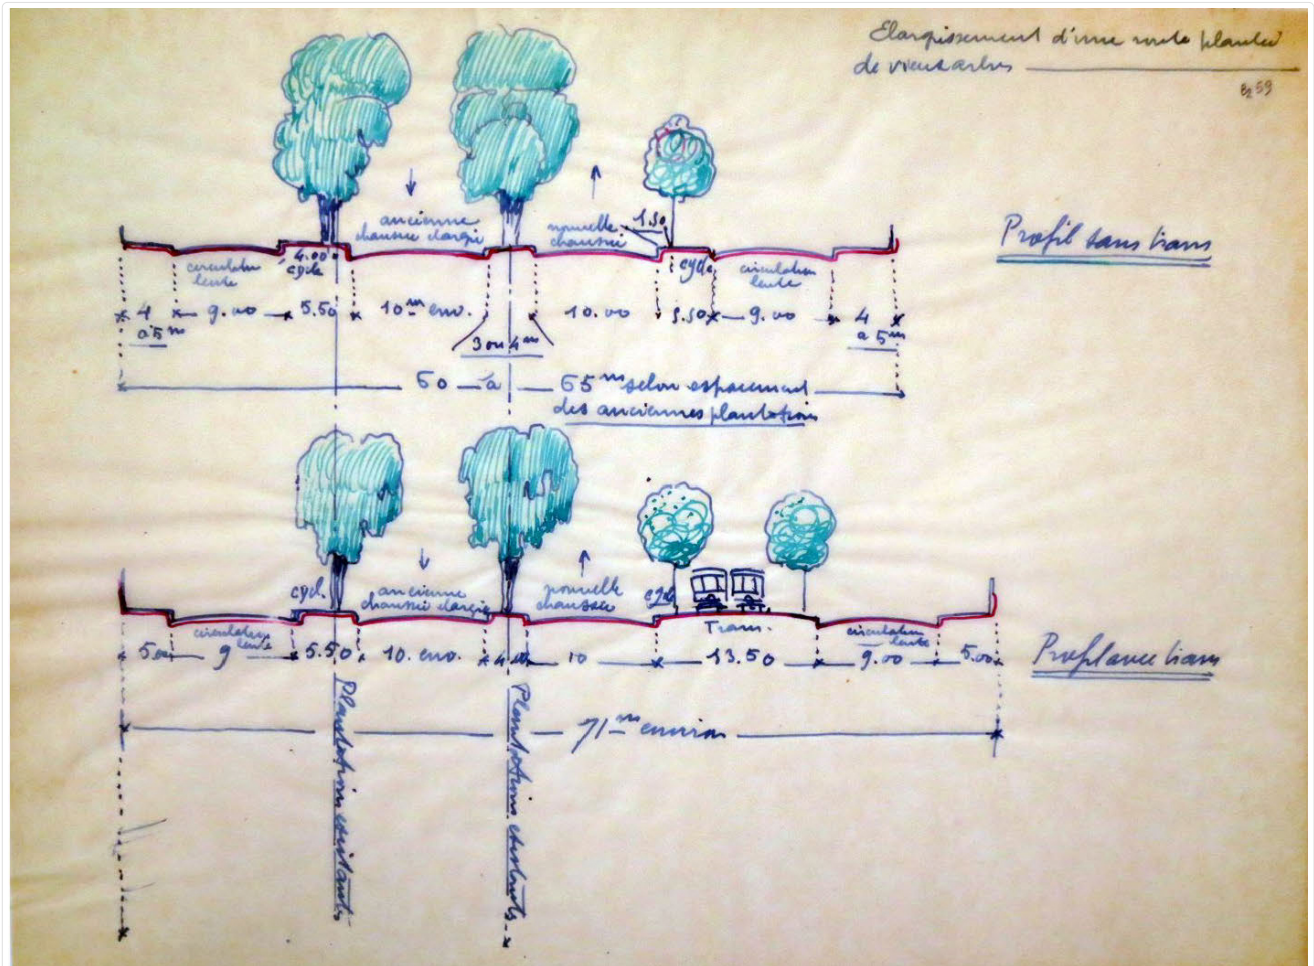 Elargissement d'une route plantée
de vieux arbres
59
Profil sans tram
ancienne
chaussée élargie
nouvelle
chaussée
1.50
circulation
lente
4.00
cycl.
cycl.
circulation
lente
4
à 5 m
9.00
5.50
10 m env.
3 ou 4 m
10.00
9.00
4
à 5 m
60 à 65 m selon espacement
des anciennes plantations
cycl.
ancienne
chaussée élargie
nouvelle
chaussée
cycl.
circulation
lente
Tram.
circulation
lente
5.00
9
5.50
10. env.
4.00
10
13.50
9.00
5.00
Profil avec tram
71 m environ
Plantations existantes
Plantations existantes